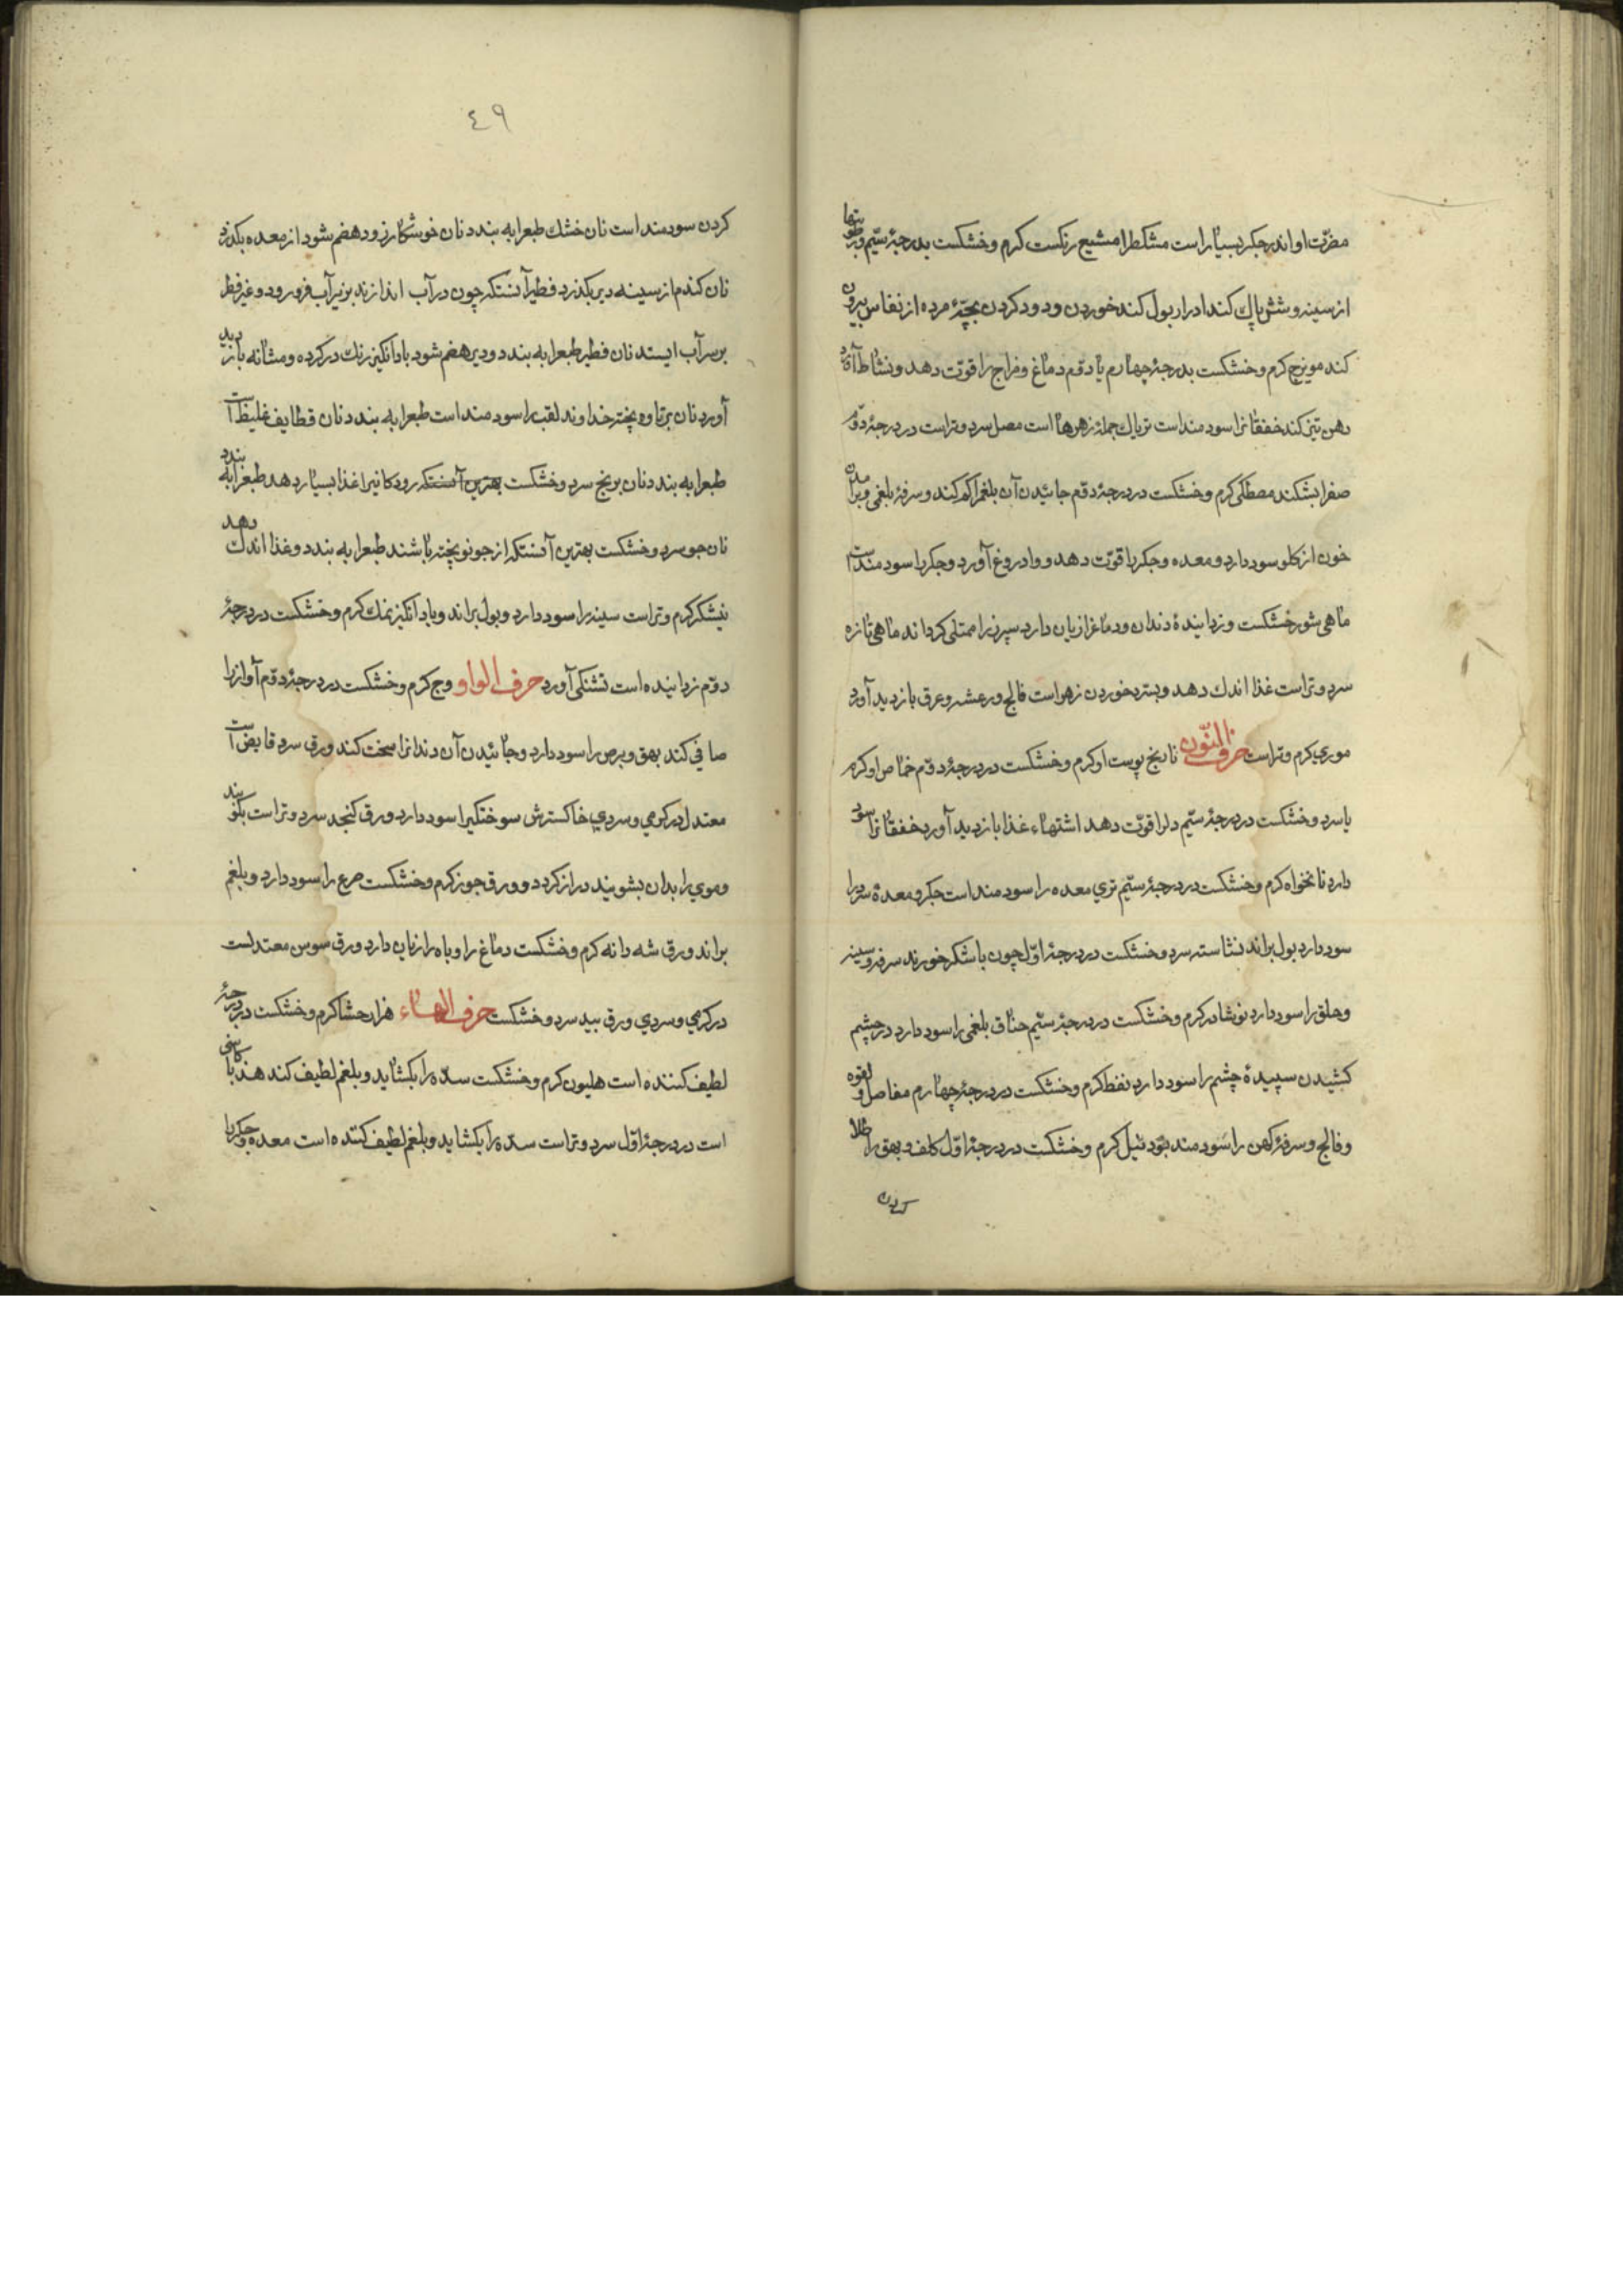 مضرّت او اندر جكر بسیار است مشكطرامشیع رنكست كرم و خشكست بدرجهٔ سیّم و رطوبتها
از سینه و شش پاك كند ادرار بول كند خوردن و دود كردن بچهٔ مرده از نفاس بیرون
كند مویزج كرم و خشكست بدرجهٔ چهارم یا دوّم دماغ و مزاج را قوّت دهد و نشاط آورد
دهن تیز كند خفقانرا سودمند است تریاك جملهٔ زهرها است مصل سرد و تر است در درجهٔ دوّم
صفرا بشكند مصطكی كرم و خشكست در درجهٔ دوّم جائیدن آن بلغمرا كم كند و سرفهٔ بلغمی و برآمدن
خون از كلو سود دارد و معده و جكر را قوّت دهد و وادروغ آورد و جكر را سودمند است
ماهی شور خشكست و زدایندهٔ دندان و دماغرا زیان دارد سپرز را ممتلی كرداند ماهی تازه
سرد و تر است غذا اندك دهد و بستر خوردن زهر است فالج و رعشه و عرق بازدید آورد
موری كرم و تر است حرف النّون نارنج پوست او كرم و خشكست در درجهٔ دوّم حماض او كرم
یا سرد و خشكست در درجهٔ سیّم دلرا قوّت دهد اشتهاء غذا بازدید آورد خفقانرا سود
دارد نانخواه كرم و خشكست در درجهٔ سیّم تری معده را سودمند است جكر و معدهٔ سرد را
سود دارد بول براند نشاسته سرد و خشكست در درجهٔ اوّل چون با شكر خورند سرفه و سینه
و حلق را سود دارد نوشادر كرم و خشكست در درجهٔ سیّم خناق بلغمی را سود دارد در چشم
كشیدن سپیدهٔ چشم را سود دارد نفط كرم و خشكست در درجهٔ چهارم مفاصل و لقوه
و فالج و سرفهٔ كهن را سودمند بود نیل كرم و خشكست در درجهٔ اوّل كلف و بهق را طلا
كردن
٤٩
كردن سودمند است نان خشك طبعرا به بندد نان خوشكار زود هضم شود از معده بكذرد
نان كندم از سینه دیر بكذرد فطیر آنستكه چون در آب اندازند بزیر آب فرو رود و غیر فطیر
بر سر آب ایستد نان فطیر طبعرا به بندد و دیر هضم شود باد انكیز رنك در كرده و مثانه بازدید
آورد نان برتاوه پخته خداوند لقب را سودمند است طبعرا به بندد نان قطایف غلیظ است
طبعرا به بندد نان برنج سرد و خشكست بهترین آنستكه رودكانیرا غذا بسیار دهد طبعرا به بندد
نان جو سرد و خشكست بهترین آنستكه از جو نو پخته باشند طبعرا به بندد و غذا اندك دهد
نیشكر كرم و تر است سینه را سود دارد و بول براند و باد انكیز نمك كرم و خشكست در درجهٔ
دوّم زداینده است تشنكی آورد حرف الواو وج كرم و خشكست در درجهٔ دوّم آوازرا
صافی كند بهق و برص را سود دارد و جائیدن آن دندانرا سخت كند ورق سرد قابض است
معتدل در كرمی و سردی خاكسترش سوختكیرا سود دارد ورق كنجد سرد و تر است بكوبند
و موی را بدان بشویند دراز كردد و ورق جوز كرم و خشكست صرع را سود دارد و بلغم
براند ورق شه دانه كرم و خشكست دماغ را و باه را زیان دارد ورق سوس معتدلست
در كرمی و سردی ورق بید سرد و خشكست حرف الهاء هزار حشا كرم و خشكست در درجهٔ
لطیف كننده است هلیون كرم و خشكست سدّه را بكشاید و بلغم لطیف كند هندبا كاسنی
است در درجهٔ اوّل سرد و تر است سدّه را بكشاید و بلغم لطیف كننده است معده و جكر را